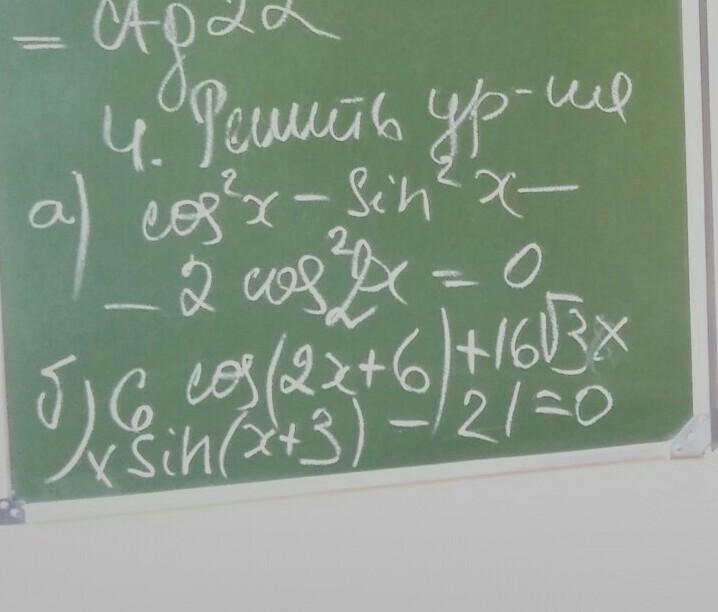 = ctg 2α
4. Решить ур-ие
а) cos²x - sin²x -
- 2 cos²2x = 0
б) 6 cos(2x+6) + 16√3 x
x sin(x+3) - 21 = 0